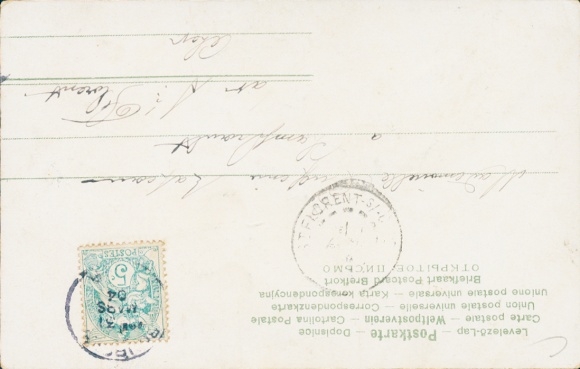 Levelező-Lap — Postkarte — Dopisnice
Carte postale — Weltpostverein — Cartolina Postale
Union postale universelle — Correspondenzkarte
Unione postale universale — Karta korespondencyjna
Briefkaart Postcard Brefkort
ОТКРЫТОЕ ПИСЬМО
ST FLORENT-S
POSTES
5
MARS
04
Mademoiselle
a
St Florent
Cher